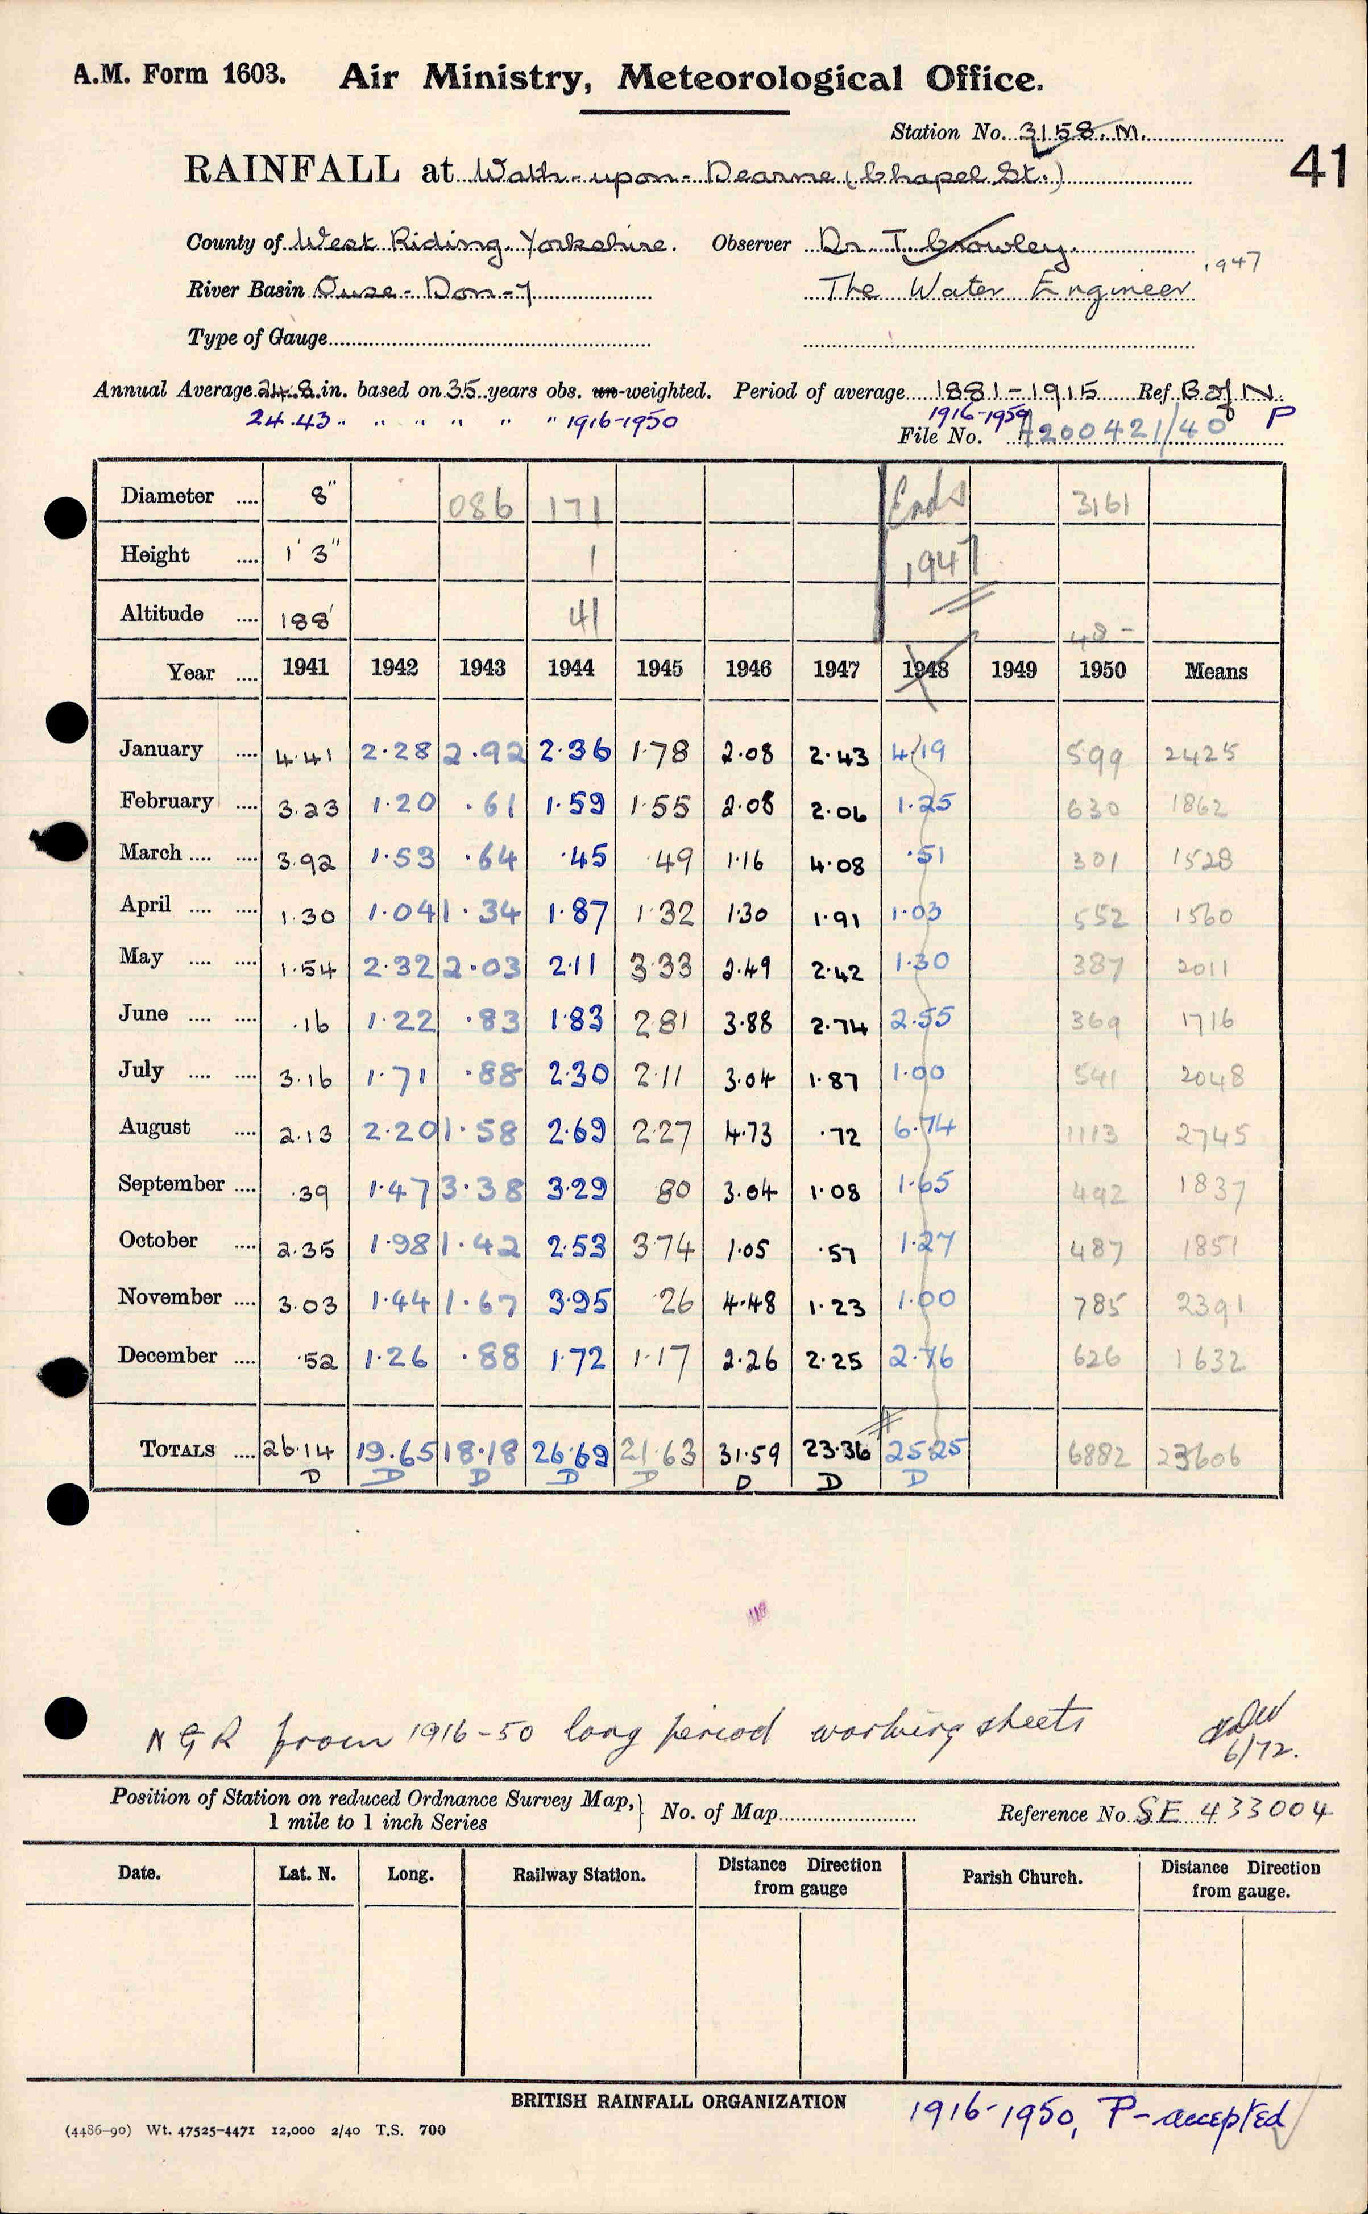 A.M. Form 1603. Air Ministry, Meteorological Office.
Station No. 3158.M.
41
RAINFALL at Wath-upon-Dearne (Chapel St.)
County of West Riding, Yorkshire. Observer Dr. T. Crowley.
1947
River Basin Ouse-Don-7 The Water Engineer
Type of Gauge
Annual Average 24.8 in. based on 35 years obs. un-weighted. Period of average 1881-1915 Ref. B of N.
24.43 " " " " " " 1916-1950 1916-1950 P
File No. A200421/40
Diameter .... 8" 086 171 Ends 3161
Height .... 1' 3" 1 1947
Altitude .... 188' 41 48-
Year .... 1941 1942 1943 1944 1945 1946 1947 1948 1949 1950 Means
January .... 4.41 2.28 2.92 2.36 1.78 2.08 2.43 4.19 599 2425
February .... 3.23 1.20 .61 1.59 1.55 2.08 2.06 1.25 630 1862
March .... .... 3.92 1.53 .64 .45 .49 1.16 4.08 .51 301 1528
April .... .... 1.30 1.04 1.34 1.87 1.32 1.30 1.91 1.03 552 1560
May .... .... 1.54 2.32 2.03 2.11 3.33 2.49 2.42 1.30 387 2011
June .... .... .16 1.22 .83 1.83 2.81 3.88 2.74 2.55 369 1716
July .... .... 3.16 1.71 .88 2.30 2.11 3.04 1.87 1.00 541 2048
August .... 2.13 2.20 1.58 2.69 2.27 4.73 .72 6.74 1113 2745
September .... .39 1.47 3.38 3.29 .80 3.04 1.08 1.65 492 1837
October .... 2.35 1.98 1.42 2.53 3.74 1.05 .57 1.27 487 1851
November .... 3.03 1.44 1.67 3.95 .26 4.48 1.23 1.00 785 2391
December .... .52 1.26 .88 1.72 1.17 2.26 2.25 2.76 626 1632
TOTALS .... 26.14 19.65 18.18 26.69 21.63 31.59 23.36 25.25 6882 23606
D D D D D D D D
NGR from 1916-50 long period working sheets
6/72.
Position of Station on reduced Ordnance Survey Map,
1 mile to 1 inch Series
No. of Map Reference No. SE 433004
Date. Lat. N. Long. Railway Station. Distance Direction from gauge Parish Church. Distance Direction from gauge.
BRITISH RAINFALL ORGANIZATION
1916-1950, P-accepted
(4486-90) Wt. 47525-4471 12,000 2/40 T.S. 700